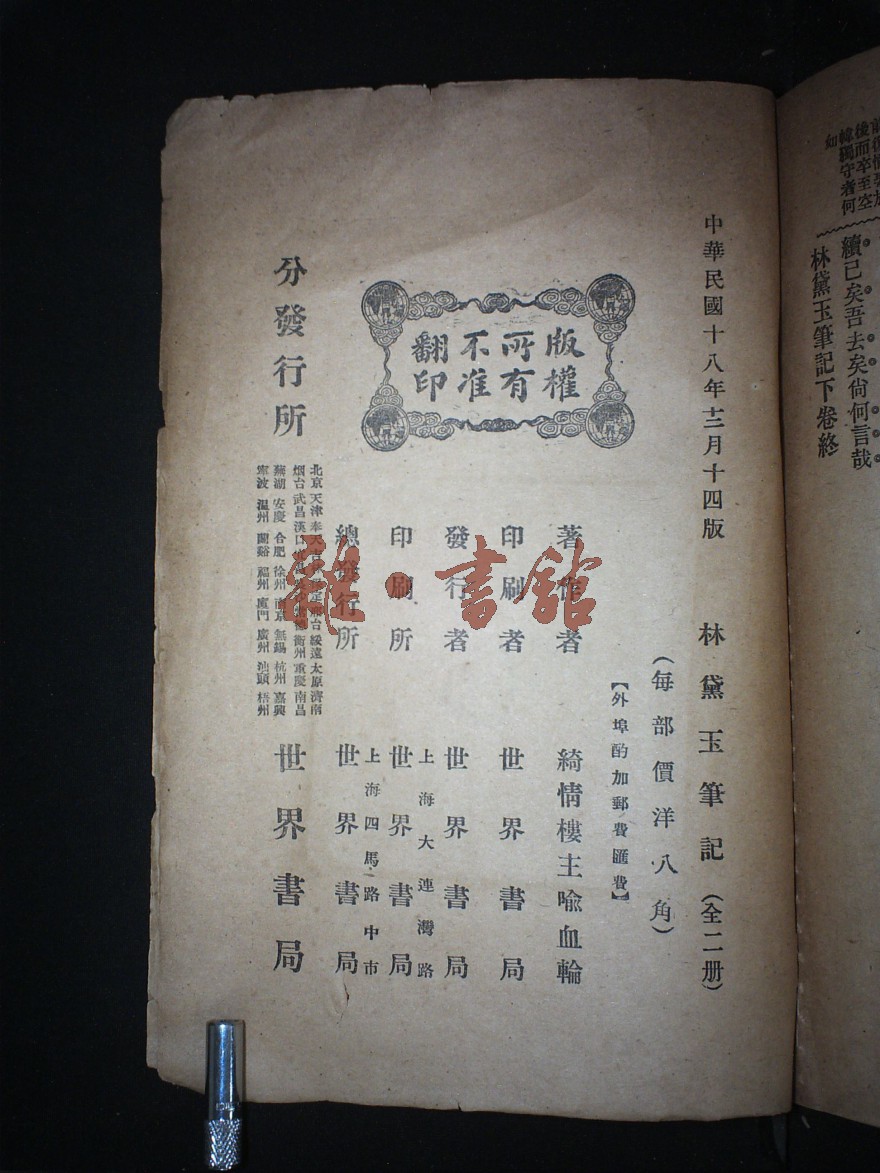 前後情勢於
後而卒至空
幃獨守者何
如
續已矣吾去矣尙何言哉
林黛玉筆記下卷終
中華民國十八年十二月十四版
林黛玉筆記(全二册)
(每部價洋八角)
【外埠酌加郵費匯費】
版權所有不准翻印
著作者 綺情樓主喩血輪
印刷者 世界書局
發行者 世界書局
上海大連灣路
印刷所 世界書局
上海四馬路中市
總發行所 世界書局
北京 天津 奉天 綏遠 太原 濟南
烟台 武昌 漢口 衡州 重慶 南昌
蕪湖 安慶 合肥 徐州 南京 無錫 杭州 嘉興
寗波 温州 蘭谿 福州 廈門 廣州 汕頭 梧州
分發行所 世界書局
雜·書館